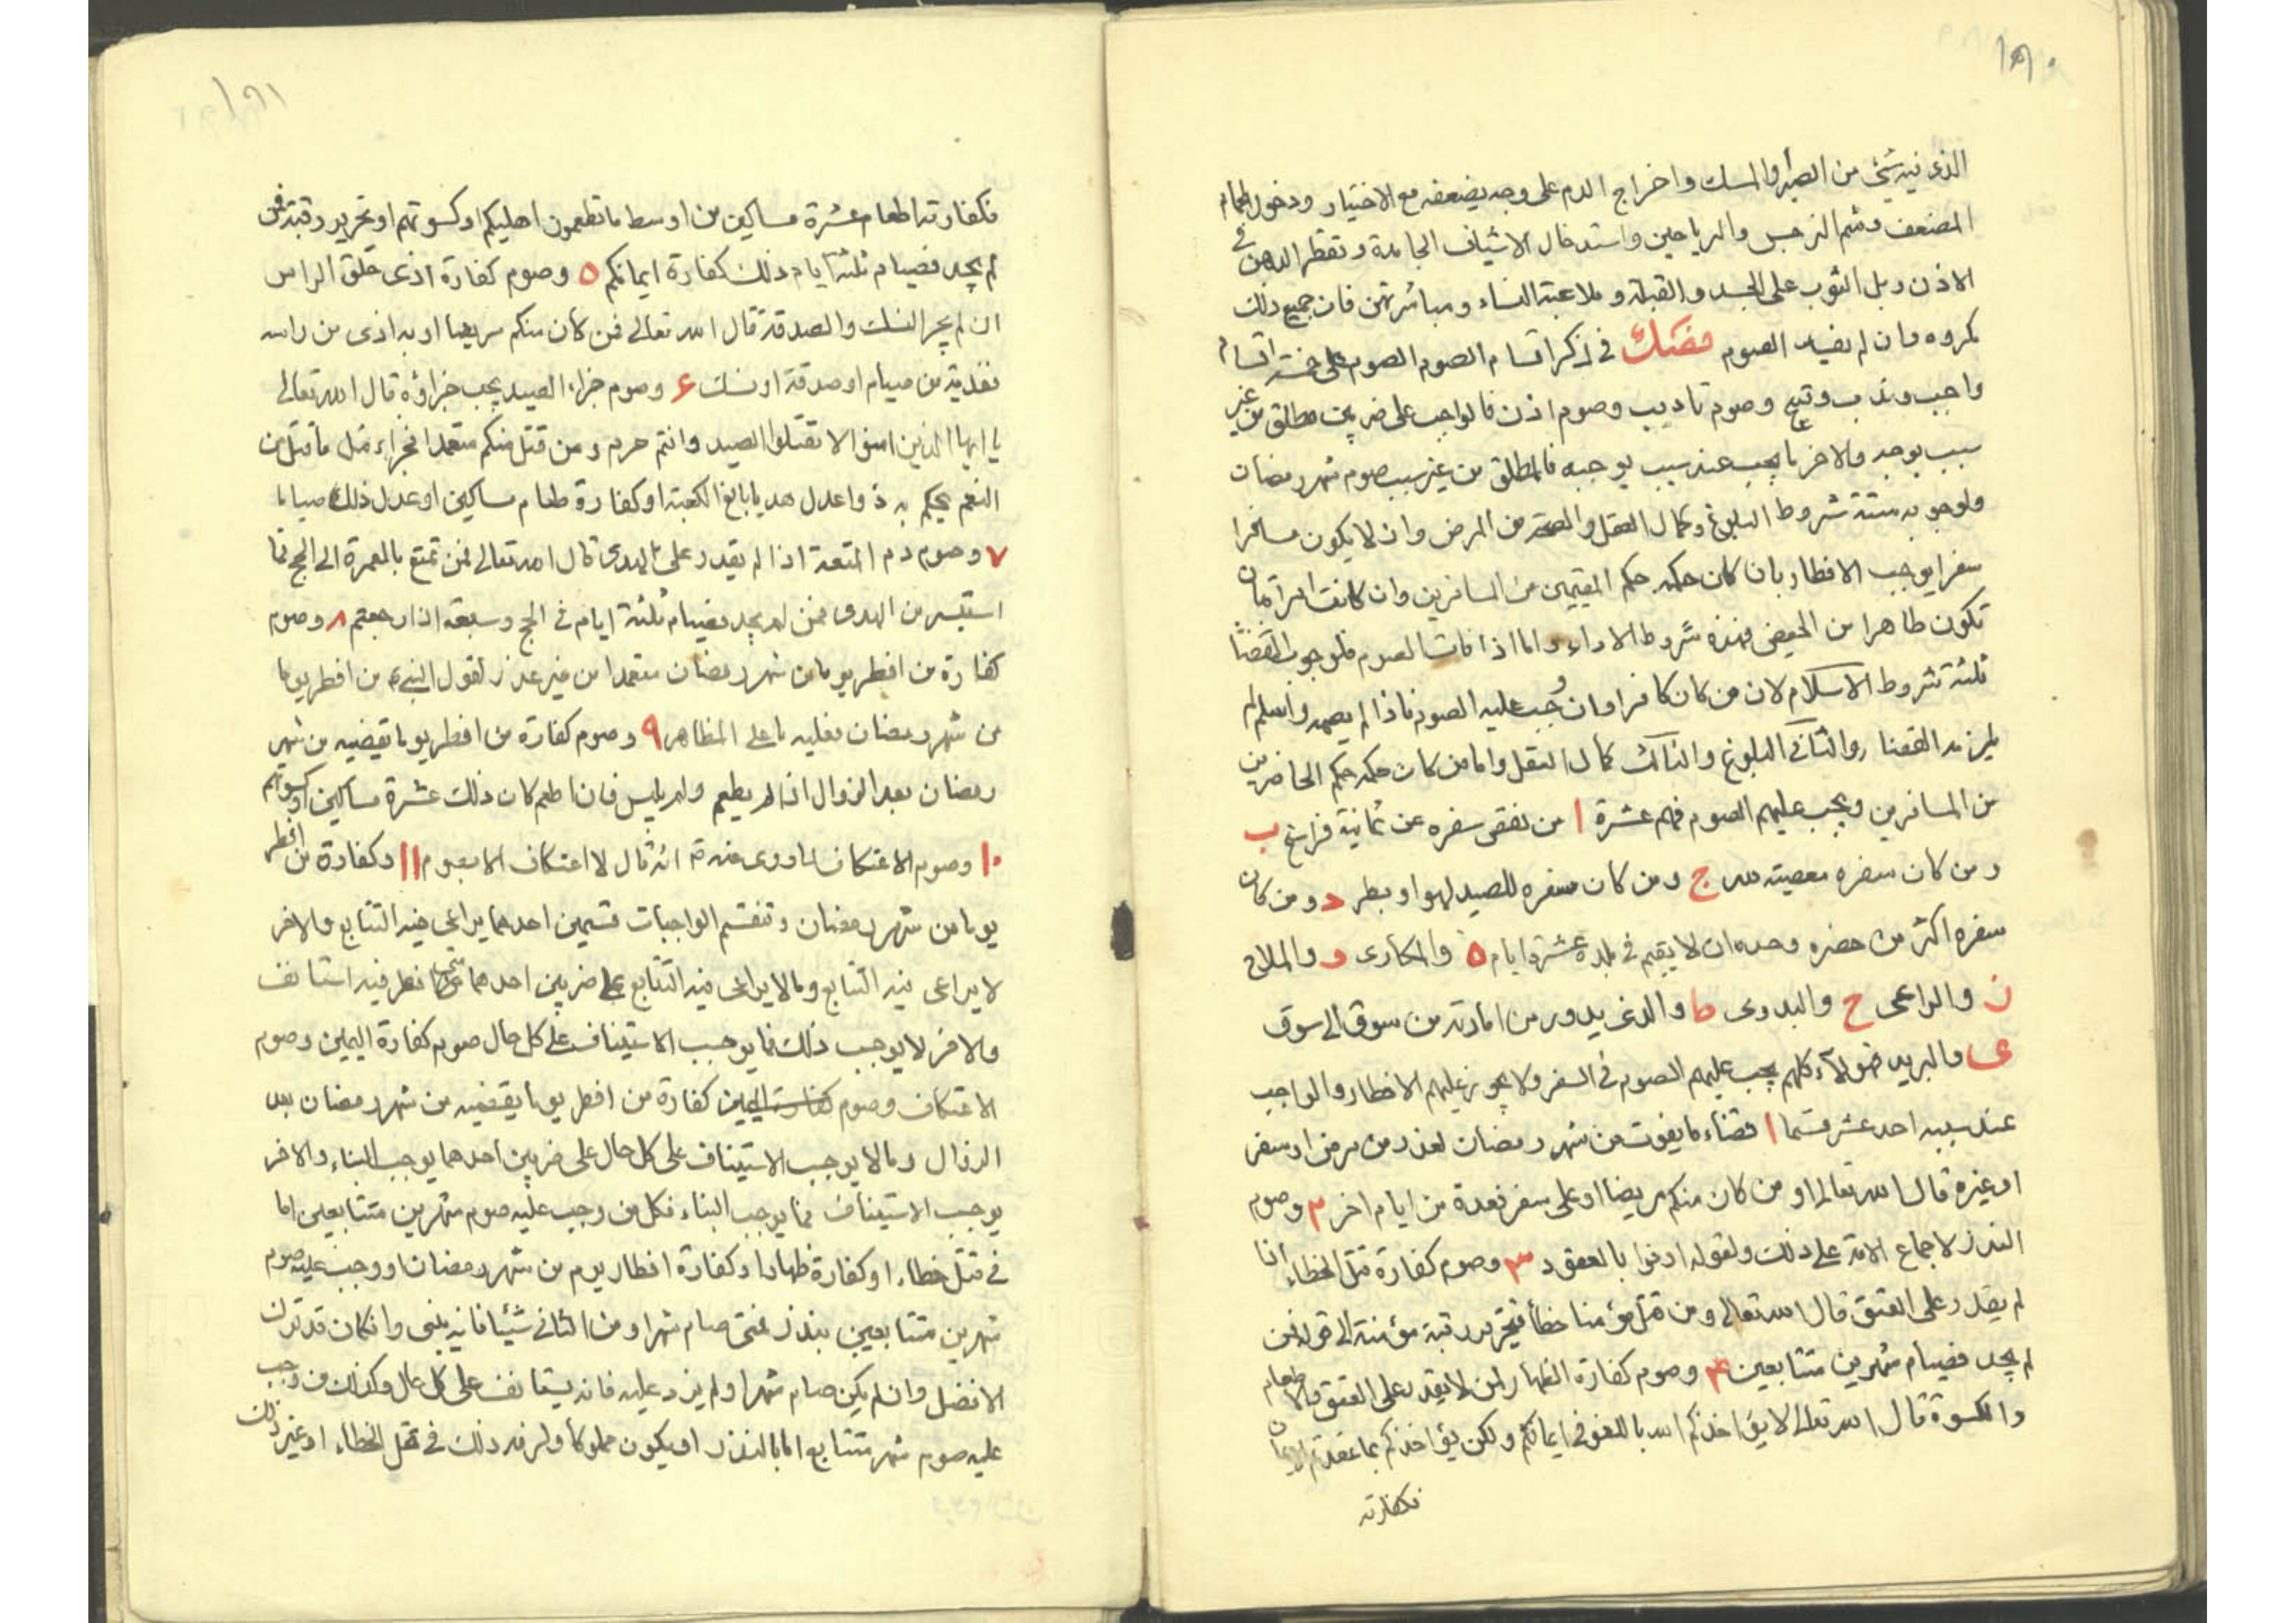 ١٩٠
الذى فيه شئ من الصبر والمسك واخراج الدم على وجه يضعفه مع الاختيار ودخول الحمام
المضعف وشم النرجس والرياحين واستدخال الاشياف الجامدة وتقطر الدهن فى
الاذن وبل الثوب على الجسد والقبلة وملاعبة النساء ومباشرتهن فان جميع ذلك
مكروه وان لم يفسد الصوم فصل فى ذكر اقسام الصوم الصوم على خمسة اقسام
واجب وندب وقبيح وصوم تاديب وصوم اذن فالواجب على ضربين مطلق من غير
سبب يوجبه والاخر ما يجب عند سبب يوجبه فالمطلق من غير سبب صوم شهر رمضان
ولوجوبه ستة شروط البلوغ وكمال العقل والصحة من المرض وان لا يكون مسافرا
سفرا يوجب الافطار بان كان حكمه حكم المقيمين من المسافرين وان كانت امراة ان
تكون طاهرا من الحيض فهذه شروط الاداء واما اذا فات الصوم فلوجوب القضاء
ثلثة شروط الاسلام لان من كان كافرا وان وجب عليه الصوم فاذا لم يصمه واسلم لم
يلزمه القضاء والثانى البلوغ والثالث كمال العقل واما من كان حكمه حكم الحاضرين
من المسافرين ويجب عليهم الصوم فهم عشرة ا من نقص سفره عن ثمانية فراسخ ب
ومن كان سفره معصية لله ج ومن كان سفره للصيد لهوا وبطر د ومن كان
سفره اكثر من حضره وحده ان لا يقيم فى بلده عشرة ايام ه والمكارى و والملاح
ز والراعى ح والبدوى ط والذى يدور من امارته من سوق الى سوق
ى والبريد فهولاء كلهم يجب عليهم الصوم فى السفر ولا يجوز عليهم الافطار والواجب
عند سببه احد عشر قسما ا قضاء ما يفوت من شهر رمضان لعذر من مرض او سفر
او غيره قال الله تعالى او من كان منكم مريضا او على سفر فعدة من ايام اخر ٢ وصوم
النذر لاجماع الامة على ذلك ولقوله اوفوا بالعقود ٣ وصوم كفارة قتل الخطاء اذا
لم يقدر على العتق قال الله تعالى ومن قتل مؤمنا خطأ فتحرير رقبة مؤمنة الى قوله فمن
لم يجد فصيام شهرين متتابعين ۴ وصوم كفارة الظهار لمن لا يقدر على العتق والاطعام
والكسوة قال الله تعالى لا يؤاخذكم الله باللغو فى ايمانكم ولكن يؤاخذكم بما عقدتم الايمان
فكفارته
١٩١
فكفارته اطعام عشرة مساكين من اوسط ما تطعمون اهليكم او كسوتهم او تحرير رقبة فمن
لم يجد فصيام ثلثة ايام ذلك كفارة ايمانكم ٥ وصوم كفارة اذى حلق الراس
ان لم يجز النسك والصدقة قال الله تعالى فمن كان منكم مريضا او به اذى من راسه
ففدية من صيام او صدقة او نسك ۶ وصوم جزاء الصيد يجب جزاؤه قال الله تعالى
يا ايها الذين امنوا لا تقتلوا الصيد وانتم حرم ومن قتل منكم متعمدا فجزاء مثل ما قتل من
النعم يحكم به ذوا عدل هديا بالغ الكعبة او كفارة طعام مساكين او عدل ذلك صياما
٧ وصوم دم المتعة اذا لم يقدر على الهدى قال الله تعالى فمن تمتع بالعمرة الى الحج فما
استيسر من الهدى فمن لم يجد فصيام ثلثة ايام فى الحج وسبعة اذا رجعتم ٨ وصوم
كفارة من افطر يوما من شهر رمضان متعمدا من غير عذر لقول النبى من افطر يوما
من شهر رمضان فعليه ما على المظاهر ٩ وصوم كفارة من افطر يوما يقضيه من شهر
رمضان بعد الزوال اذا لم يطعم ولم يلبس فان اطعم كان ذلك عشرة مساكين او كسوتهم
١٠ وصوم الاعتكاف لما روى عنه انه قال لا اعتكاف الا بصوم ١١ وكفارة من افطر
يوما من شهر رمضان وتنقسم الواجبات قسمين احدهما يراعى فيه التتابع والاخر
لا يراعى فيه التتابع وما لا يراعى فيه التتابع على ضربين احدهما متى افطر فيه استانف
والاخر لا يوجب ذلك فما يوجب الاستيناف على كل حال صوم كفارة اليمين وصوم
الاعتكاف وصوم كفارة اليمين كفارة من افطر يوما يقضيه من شهر رمضان بعد
الزوال وما لا يوجب الاستيناف على كل حال على ضربين احدهما يوجب البناء والاخر
يوجب الاستيناف فما يوجب البناء فكل من وجب عليه صوم شهرين متتابعين اما
فى قتل خطاء او كفارة ظهار او كفارة افطار يوم من شهر رمضان او وجب عليه صوم
شهرين متتابعين بنذر فمتى صام شهرا ومن الثانى شيئا فانه يبنى وان كان قد ترك
الافضل وان لم يكن صام شهرا ولم يزد عليه فانه يستانف على كل حال وكذلك من وجب
عليه صوم شهر متتابع اما بالنذر او يكون مملوكا ولزمه ذلك فى قتل الخطاء او غير ذلك